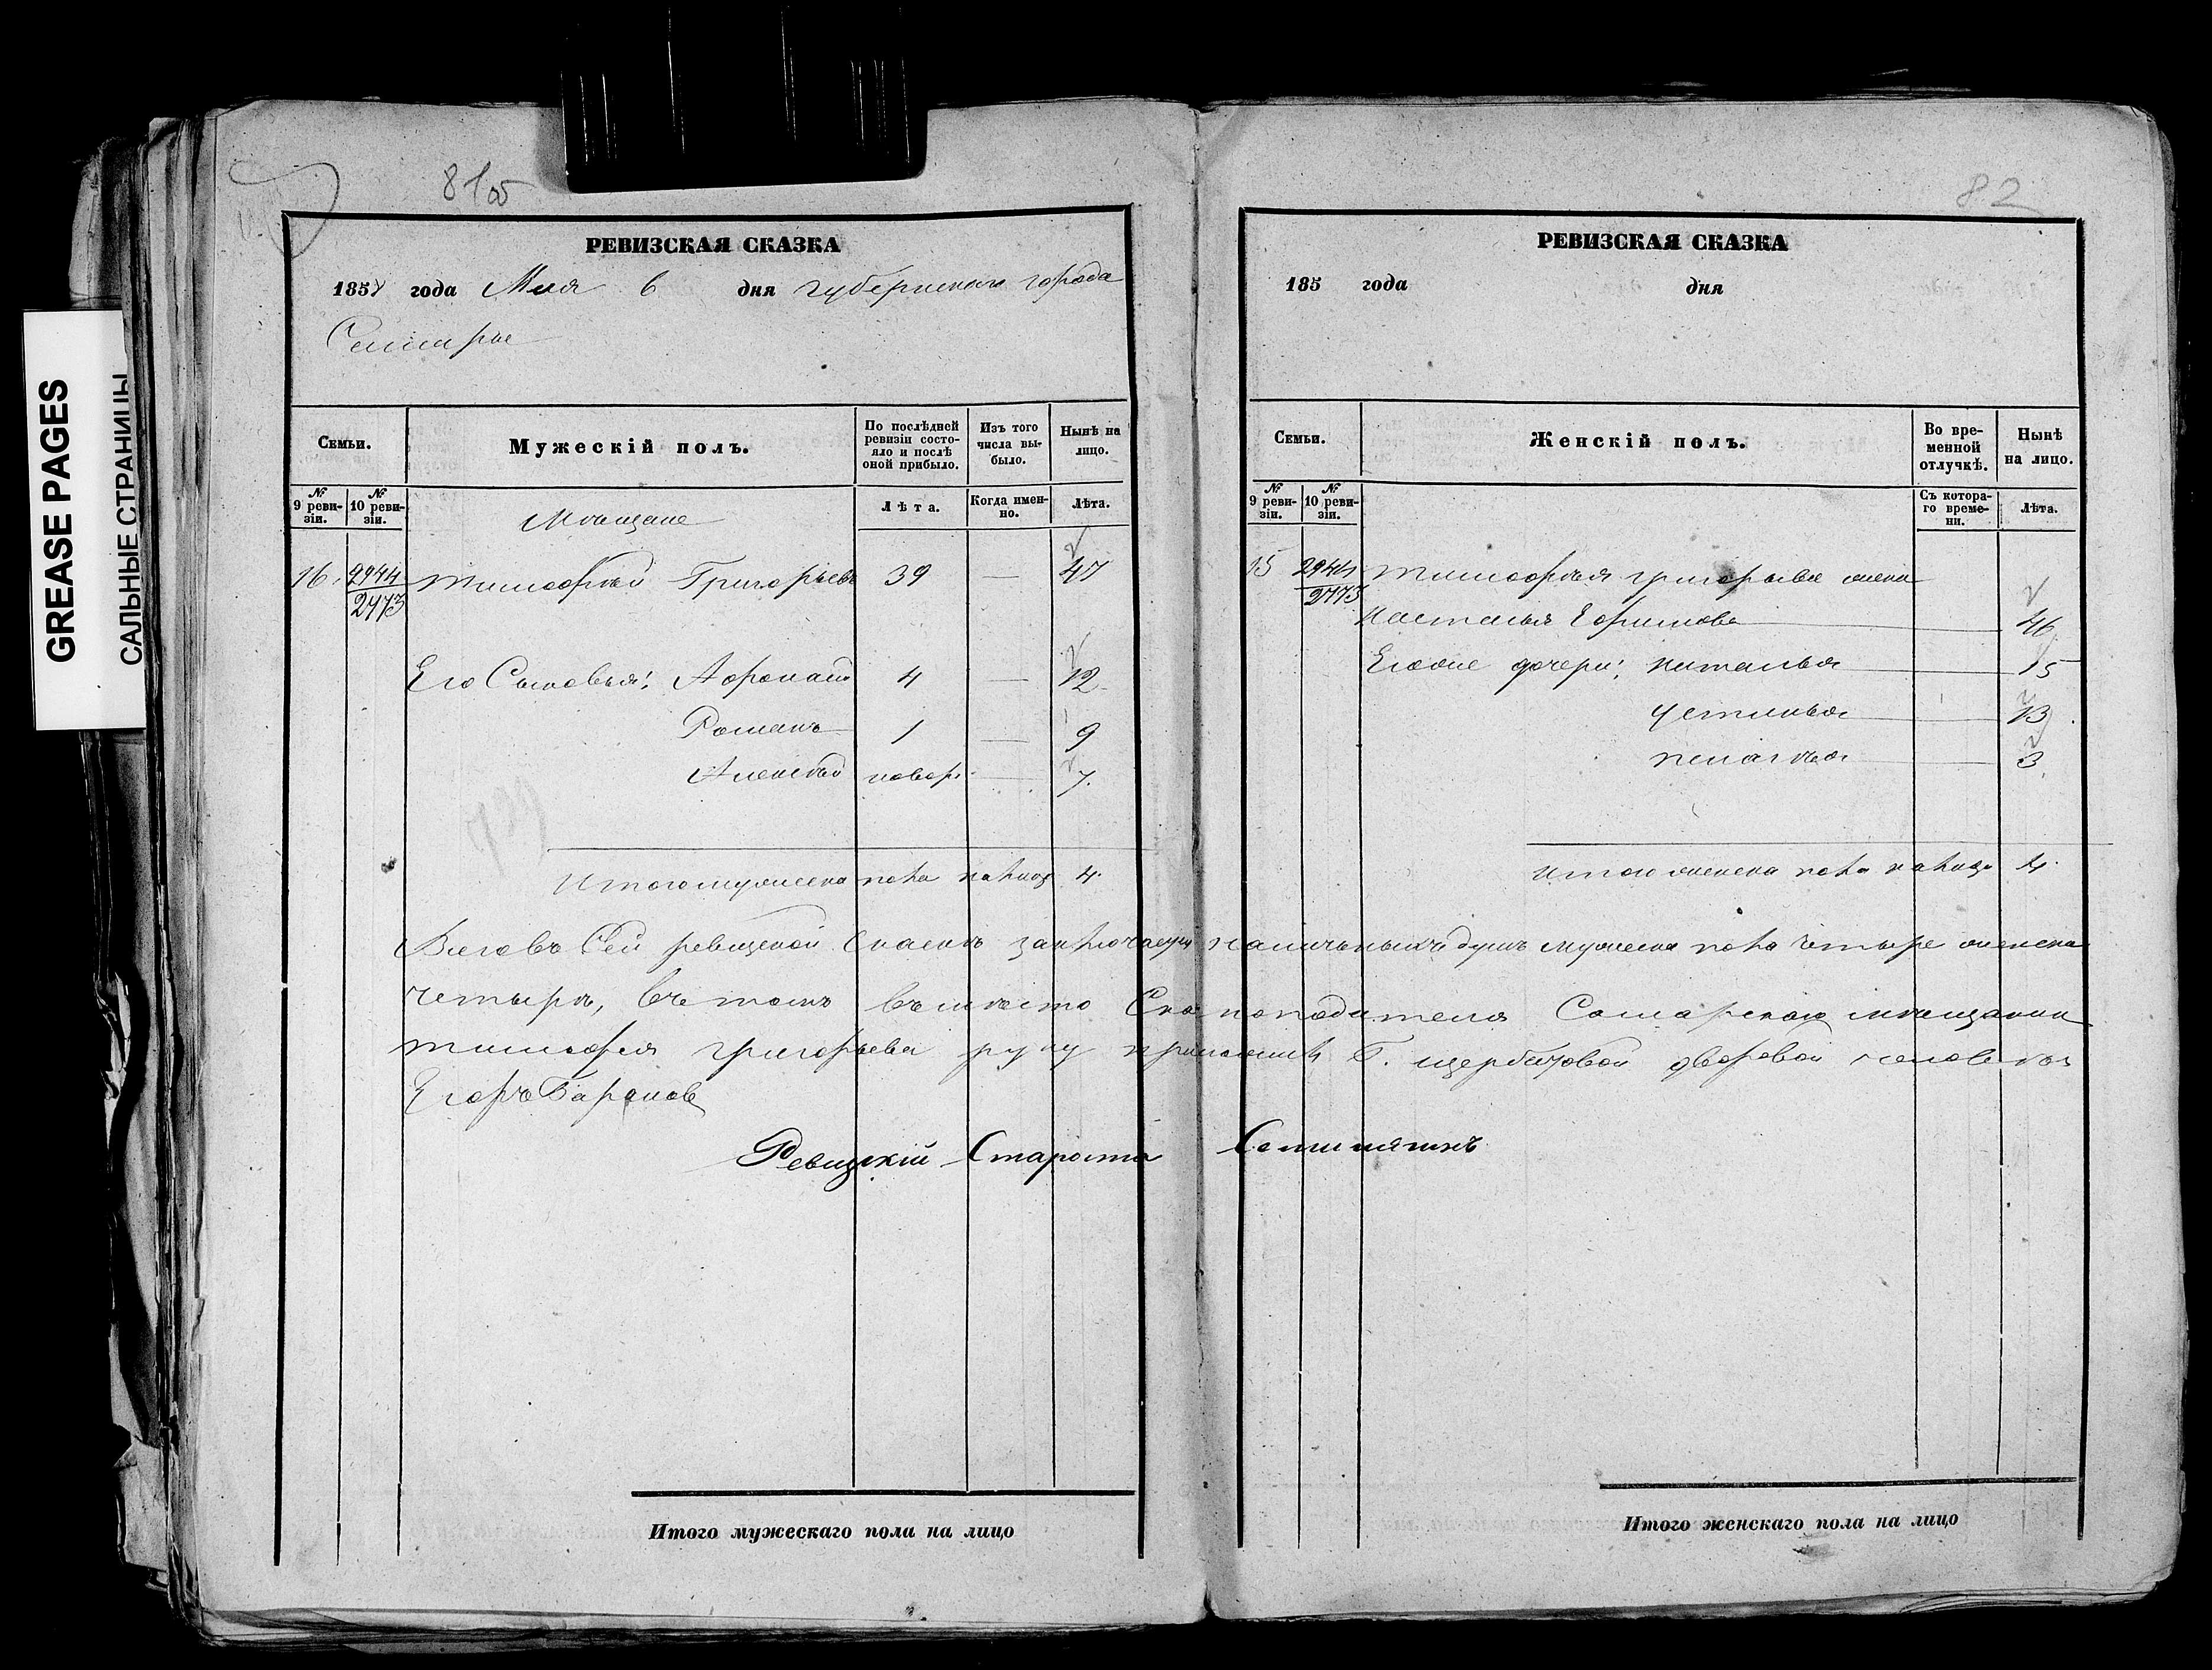 GREASE PAGES
САЛЬНЫЕ СТРАНИЦЫ
81об
РЕВИЗСКАЯ СКАЗКА
185 года Мая 6 дня губернскаго города
Самары
Семьи.
Мужескій полъ.
По послѣдней ревизіи состояло и послѣ оной прибыло.
Изъ того числа выбыло.
Нынѣ на лицо.
№ 9 ревизіи.
№ 10 ревизіи.
Мѣщане
Лѣта.
Когда именно.
Лѣта.
16. 2944 Тимофѣй Григорьевъ 39 — 47
2473
Его Сыновья: Афонасій 4 — 12
Романъ 1 — 9
Алексѣй новор. — 7.
Итого мужеска пола на лицо 4.
82
РЕВИЗСКАЯ СКАЗКА
185 года дня
Семьи.
Женскій полъ.
Во временной отлучкѣ.
Нынѣ на лицо.
№ 9 ревизіи.
№ 10 ревизіи.
Съ котораго времени.
Лѣта.
15 2944 Тимофѣя Григорьева жена
2473
Настасья Ефимова 46
Егоже дочери: Наталья 15
Устинья 13
Пелагѣя 3
Итого женска пола на лицо 4.
Всего въ Сей ревизской Сказкѣ заключается наличныхъ душъ мужеска пола четыре женска
четыре, въ томъ вмѣсто Сказкоподателя Самарскаго мѣщанина
Тимофея Григорьева руку приложилъ Г. Щербатовой дворовой человекъ
Егоръ Барановъ
Ревизскій Староста
Итого мужескаго пола на лицо
Итого женскаго пола на лицо